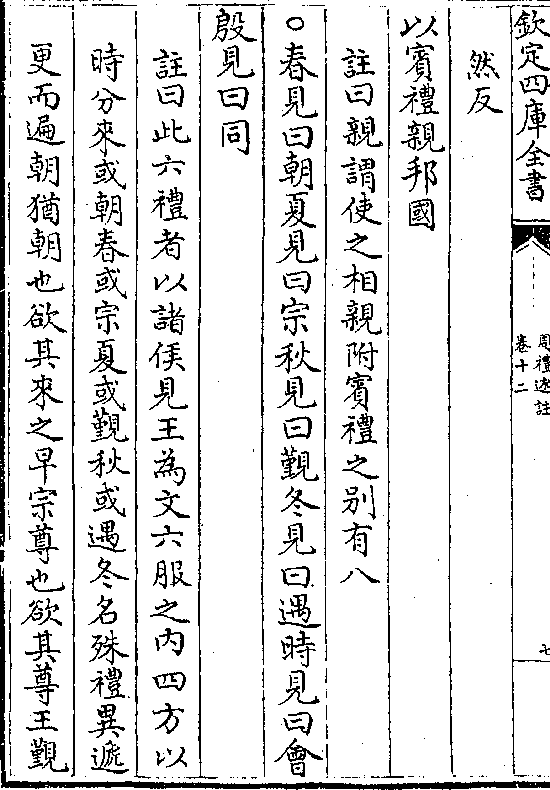 欽定四庫全書
周禮述註
卷十二
七
然反
以賓禮親邦國
註曰親謂使之相親附賓禮之別有八
○春見曰朝夏見曰宗秋見曰覲冬見曰遇時見曰會
殷見曰同
註曰此六禮者以諸侯見王為文六服之內四方以
時分來或朝春或宗夏或覲秋或遇冬名殊禮異遞
更而遍朝猶朝也欲其來之早宗尊也欲其尊王覲